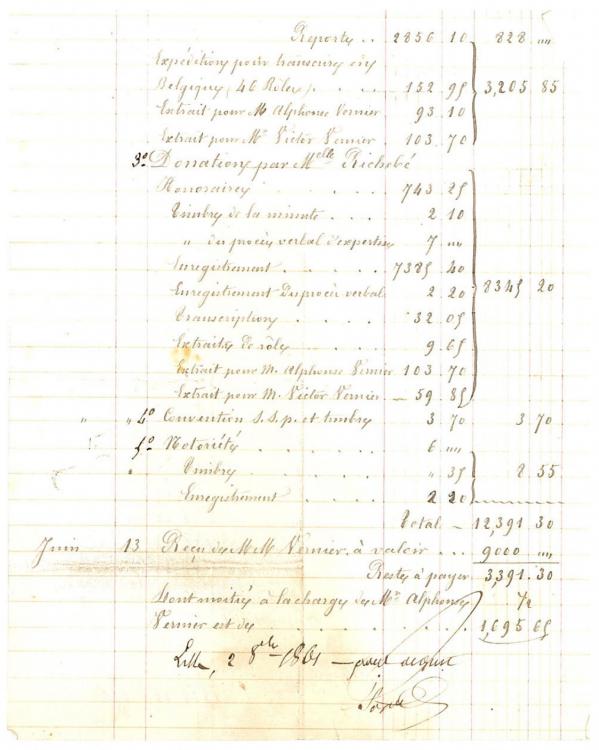 Reporte . . 2856 . 10 828 "
Expéditions pour transcrire en
Belgique (46 Rôles) . . . 152 . 95 3,205 85
Extrait pour M Alphonse Vernier 93 . 10
Extrait pour Mr Victor Vernier . 103 . 70
3º Donation par Melle Richebé
Honoraires 743 . 25
Timbre de la minute . . . 2 . 10
" du procès verbal d'expertise 7 . "
Enregistrement . . . . . 7385 . 40
Enregistrement du procès verbal . 2 . 20 8345 20
Transcription . . . . 32 . 05
Extraits de rôles . . . . 9 . 65
Extrait pour M. Alphonse Vernier 103 . 70
Extrait pour M. Victor Vernier — 59 . 85
" " 4º Convention S.S.p. et timbre 3 . 70 3 . 70
5º Notoriété . . . . . 6 . "
Timbre . . . . . " . 35 8 . 55
Enregistrement . . . . . 2 20
Total — 12,391 . 30
Juin 13 Reçu de M M Vernier à valoir . . . 9000 "
Reste à payer 3,391 . 30
Dont moitié à la charge de Mr Alphonse ½
Vernier est de . . . . . . . . 1,695 65
Lille, 2 8bre 1861 — pour acquit